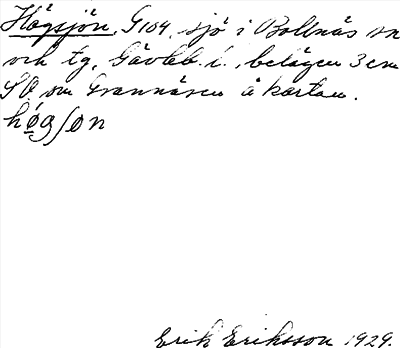 Högsjön, G104, sjö i Bollnäs sn
och tg, Gävleb. l., belägen 3 cm
SO. om Grannäsen å kartan.
hǿgʃøn
Erik Eriksson 1929.